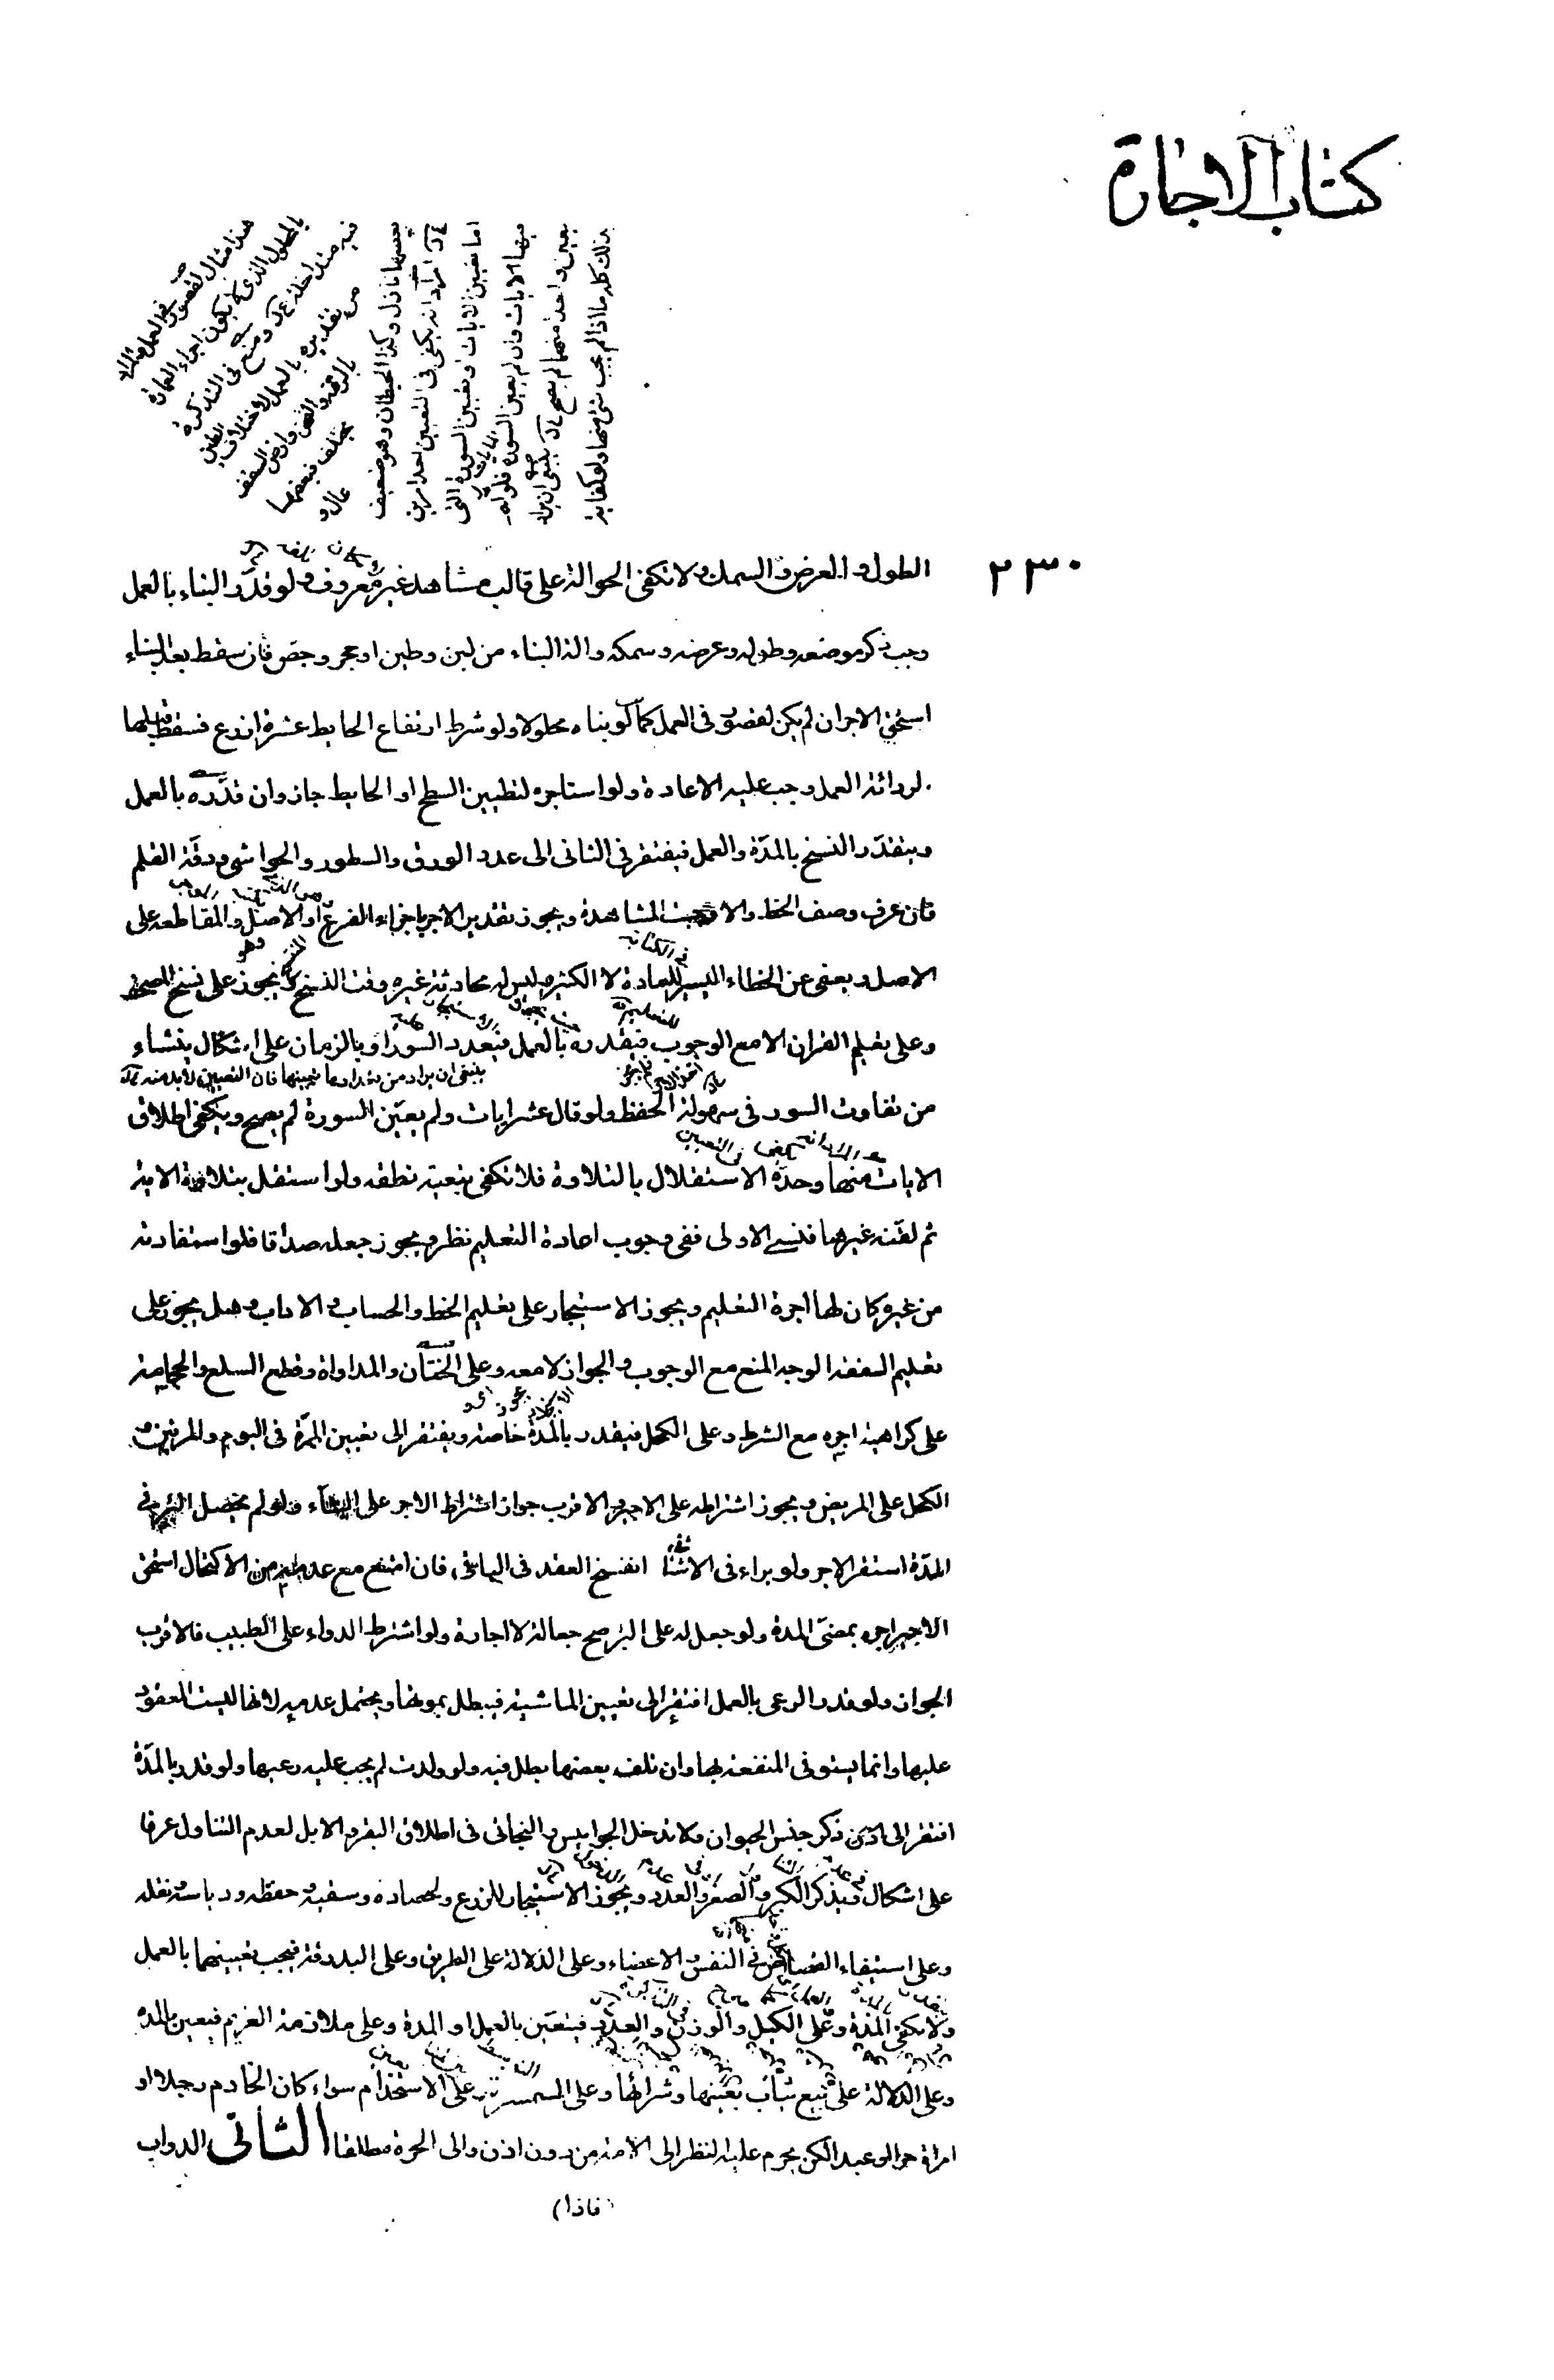 كتاب الاجارة
٢٣٠
هذا مثال لقصور في العمل
بالمحلول الذي لا يكون اجزاء
فيه عند اخلة ومنع في التذكرة
من تقديره بالعمل لاختلاف
يختلف فبعضها
عال و
بعضها نازل وكذا الحيطان وهو ضعيف
اراد انه يكفى فى التعيين احد امرين
اما تعيين الايات او تعيين السورة التى
فيها الايات وان لم يعين السورة فلو لم
يعين واحد منهما لم يصح ينبغى ان يراد
بذلك كله ما اذا لم يجب شئ منها ولو كفاية
الطول والعرض والسمك ولا تكفى الحوالة على قالب مشاهد غير معروف ولو قدّر البناء بالعمل
وجب ذكر موضعه وطوله وعرضه وسمكه والة البناء من لبن وطين او حجر وجصّ فان سقط بعد البناء
استحق الاجر ان لم يكن لقصور فى العمل كما لو بناه محلولا ولو شرط ارتفاع الحايط عشرة اذرع فسقط قبلها
لردائة العمل وجب عليه الاعادة ولو استاجره لتطيين السطح او الحايط جاز وان قدّره بالعمل
ويتقدّر النسخ بالمدّة والعمل فيفتقر فى الثانى الى عدد الورق والسطور والحواشى ودقّة القلم
فان عرف وصف الخط والا وجبت المشاهدة ويجوز تقدير الاجر باجزاء الفرع او الاصل والمقاطعه على
الاصل ويعفى عن الخطاء اليسير للعادة لا الكثير وليس له محادثة غيره وقت النسخ ويجوز على نسخ المصحف
وعلى تعليم القران الا مع الوجوب فيقدره بالعمل فيعدد السور او بالزمان على اشكال ينشاء
ينبغى ان يراد من تعدادها تعيينها فان التعيين لابد منه
من تفاوت السور فى سهولة الحفظ ولو قال عشر ايات ولم يعيّن السورة لم يصح ويكفى اطلاق
الايات منها وحدّه الاستقلال بالتلاوة فلا تكفى تبعيّة نطقه ولو استقل بتلاوة الاية
ثم لقّنه غيرها فنسى الاولى ففى وجوب اعادة التعليم نظر ويجوز جعله صداقا فلو استفادته
من غيره كان لها اجرة التعليم ويجوز الاستيجار على تعليم الخط والحساب والاداب وهل يجوز على
تعليم الفقه الوجه المنع مع الوجوب والجواز لا معه وعلى الختان والمداواة وقطع السلع والحجامة
على كراهية اجره مع الشرط وعلى الكحل فيقدر بالمدّة خاصة ويفتقر الى تعيين المرّة فى اليوم والمرتين و
الكحل على المريض ويجوز اشتراطه على الاجير والاقرب جواز اشتراط الاجر على البرء ولو لم يحصل البرء فى
المدّة استقر الاجر ولو براء فى الاثناء انفسخ العقد فى الباقى فان امتنع مع عدمه من الاكتحال استحق
الاجير اجره بمضىّ المدة ولو جعل له على البرء صح جعالة لا اجارة ولو اشترط الدواء على الطبيب فالاقرب
الجواز ولو قدر الرعى بالعمل افتقر الى تعيين الماشية فيبطل بموتها ويحتمل عدمه لانها ليست المعقود
عليها وانما يستوفى المنفعة بها وان تلف بعضها بطل فيه ولو ولدت لم يجب عليه رعيها ولو قدر بالمدّة
افتقر الى ذكر جنس الحيوان ولا تدخل الجواميس والبخاتى فى اطلاق البقر والابل لعدم التناول عرفا
على اشكال ويذكر الكبر والصغر والعدد ويجوز الاستيجار للزرع ولحصاده وسقيه وحفظه ودياسه ونقله
وعلى استيفاء القصاص فى النفس والاعضاء وعلى الدلالة على الطريق وعلى البدرقة فيجب تعيينهما بالعمل
ولا تكفى المدّة وعلى الكيل والوزن والعدد فيتعين بالعمل او المدة وعلى ملازمة الغريم فيعين بالمدة
وعلى الدلالة على بيع ثياب بعينها وشرائها وعلى السمسرة وعلى الاستخدام سواء كان الخادم رجلا او
امراة حرا او عبدا لكن يحرم عليه النظر الى الامة من دون اذن والى الحرة مطلقا الثانى الدواب
(فاذا)